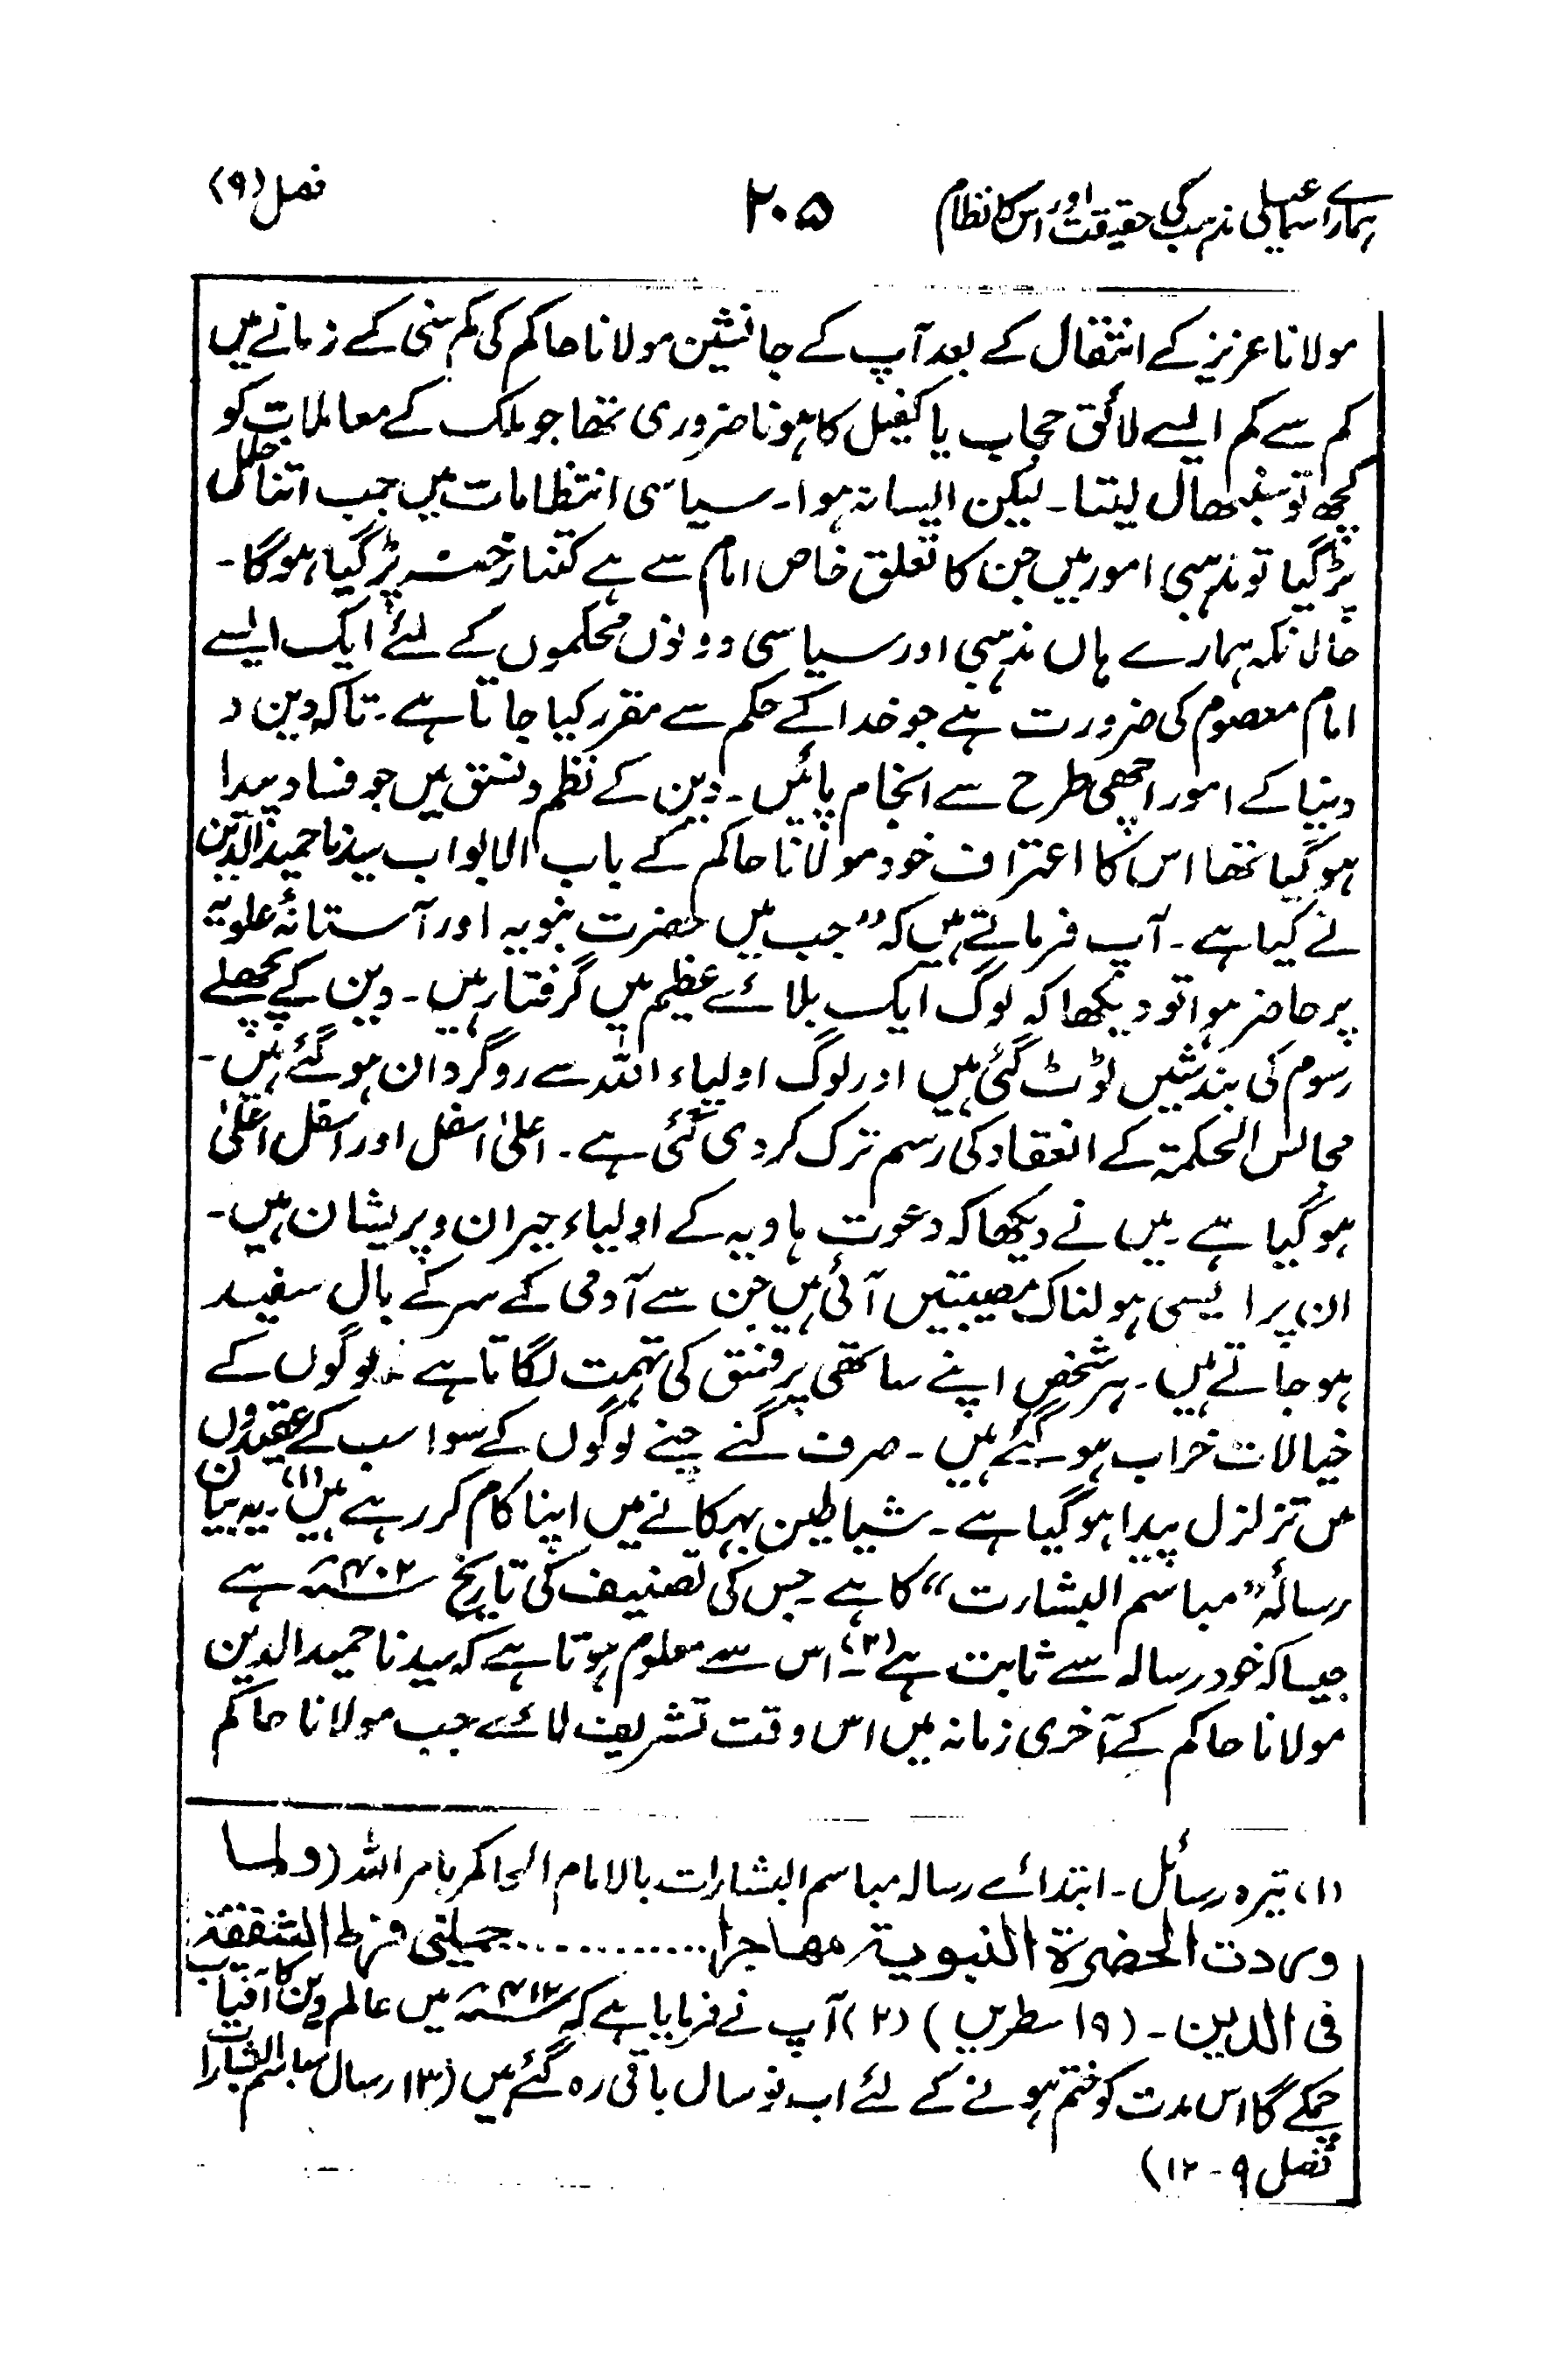 ہمارے اسماعیلی مذہب کی حقیقت اور اس کا نظام ۲۰۵ فصل (۹)
مولانا عزیز کے انتقال کے بعد آپ کے جانشین مولانا حاکم کی کم سنی کے زمانے میں
کم سے کم ایسے لائق حجاب یا کفیل کا ہونا ضروری تھا جو ملک کے معاملات کو
کچھ تو سنبھال لیتا۔ لیکن ایسا نہ ہوا۔ سیاسی انتظامات میں جب اتنا خلل
پڑ گیا تو مذہبی امور میں جن کا تعلق خاص امام سے ہے کتنا رخنہ پڑ گیا ہوگا۔
حالانکہ ہمارے ہاں مذہبی اور سیاسی دونوں محکموں کے لئے ایک ایسے
امام معصوم کی ضرورت ہے جو خدا کے حکم سے مقرر کیا جاتا ہے۔ تاکہ دین و
دنیا کے امور اچھی طرح سے انجام پائیں۔ دین کے نظم و نسق میں جو فساد پیدا
ہو گیا تھا اس کا اعتراف خود مولانا حاکم کے باب الابواب سیدنا حمید الدین
نے کیا ہے۔ آپ فرماتے ہیں کہ ”جب میں حضرت نبویہ اور آستانۂ علویہ
پر حاضر ہوا تو دیکھا کہ لوگ ایک بلائے عظیم میں گرفتار ہیں۔ دین کے پچھلے
رسوم کی بندشیں ٹوٹ گئی ہیں اور لوگ اولیاء اللہ سے روگردان ہو گئے ہیں۔
مجالس الحکمۃ کے انعقاد کی رسم ترک کر دی گئی ہے۔ اعلیٰ اسفل اور اسفل اعلیٰ
ہو گیا ہے۔ میں نے دیکھا کہ دعوت ہادیہ کے اولیاء حیران و پریشان ہیں۔
ان پر ایسی ہولناک مصیبتیں آئی ہیں جن سے آدمی کے سر کے بال سفید
ہو جاتے ہیں۔ ہر شخص اپنے ساتھی پر فسق کی تہمت لگاتا ہے۔ لوگوں کے
خیالات خراب ہو گئے ہیں۔ صرف گنے چنے لوگوں کے سوا سب کے عقیدوں
میں تزلزل پیدا ہو گیا ہے۔ شیاطین بہکانے میں اپنا کام کر رہے ہیں (۱)۔ یہ بیان
رسالۂ ”مباسم البشارت“ کا ہے۔ جس کی تصنیف کی تاریخ ۴۰۲ھ ہے
جیسا کہ خود رسالہ سے ثابت ہے (۲)۔ اس سے معلوم ہوتا ہے کہ سیدنا حمید الدین
مولانا حاکم کے آخری زمانہ میں اس وقت تشریف لائے جب مولانا حاکم
(۱) تیرہ رسائل۔ ابتدائے رسالہ مباسم البشارات بالامام الحاکم بامر اللہ (ولما
وردت الحضرة النبویة مهاجرا............حملنی فرط الشفقة
فی الدین۔ (۱۹ سطریں) (۲) آپ نے فرمایا ہے کہ ۴۱۲ھ میں عالم دین کا آفتاب
چمکے گا اس مدت کو ختم ہونے کے لئے اب نو سال باقی رہ گئے ہیں (۱۳ رسال مباسم البشارات
فصل ۹-۱۲)